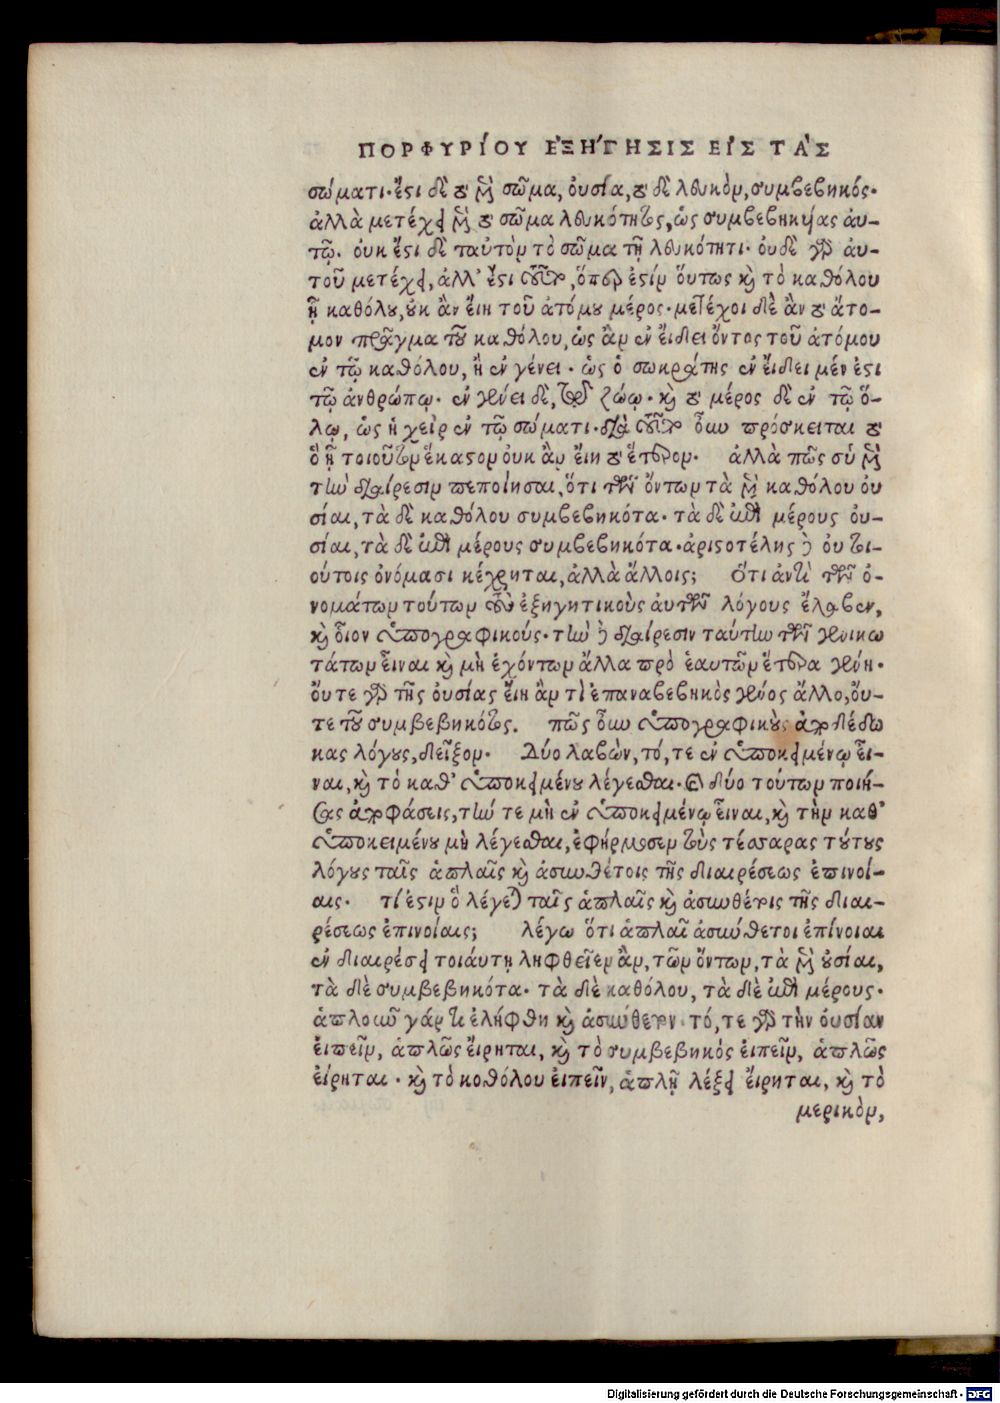 ΠΟΡΦΥΡΙΟΥ ἘΞΗΓΗΣΙΣ ΕΙΣ ΤΑΣ
σώματι· ἔϛι δὲ τὸ μὲν σῶμα, ὀυσία, τὸ δὲ λευκὸν, συμβεβηκός·
ἀλλὰ μετέχει μὲν τὸ σῶμα λευκότητος, ὡς συμβεβηκυίας ἀυ-
τῷ. ὀυκ ἔϛι δὲ ταὐτὸν τὸ σῶμα τῇ λευκότητι· ὀυδὲ γὰρ ἀυ-
τοῦ μετέχει, ἀλλ' ἔϛι τοῦτο, ὅπερ ἐϛίν ὅυτως καὶ τὸ καθόλου
ᾗ καθόλου, ὀυκ ἂν ἔιη τοῦ ἀτόμου μέρος· μετέχοι δὲ ἂν τὸ ἄτο-
μον πρᾶγμα τοῦ καθόλου, ὡς ἂν ἐν ἔιδει ὄντος τοῦ ἀτόμου
ἐν τῷ καθόλου, ἢ ἐν γένει· ὡς ὁ σωκράτης ἐν ἔιδει μέν ἐϛι
τῷ ἀνθρώπῳ· ἐν γένει δὲ, τῷ ζώῳ· καὶ τὸ μέρος δὲ ἐν τῷ ὅ-
λῳ, ὡς ἡ χεὶρ ἐν τῷ σώματι· διὰ τοῦτο οὖν πρόσκειται τὸ
ὃ ᾗ τοιοῦτον ἕκαϛον ὀυκ ἂν ἔιη τὸ ἕτερον· ἀλλὰ πῶς σὺ μὲν
τὴν διαίρεσιν πεποίησαι, ὅτι τῶν ὄντων τὰ μὲν καθόλου ὀυ
σίαι, τὰ δὲ καθόλου συμβεβηκότα· τὰ δὲ κατὰ μέρους ὀυ-
σίαι, τὰ δὲ κατὰ μέρους συμβεβηκότα· ἀριϛοτέλης δὲ ὀυ τοι-
ούτοις ὀνόμασι κέχρηται, ἀλλὰ ἄλλοις; Ὅτι ἀντὶ τῶν ὀ-
νομάτων τούτων τοὺς ἐξηγητικοὺς ἀυτῶν λόγους ἔλαβεν,
καὶ ὅιον ὑπογραφικούς· τὴν δὲ διαίρεσιν ταύτην τῶν γενικω
τάτων εἶναι καὶ μὴ ἐχόντων ἄλλα πρὸ ἑαυτῶν ἕτερα γένη·
ὄυτε γὰρ τῆς ὀυσίας ἔιη ἂν τὶ ἐπαναβεβηκὸς γένος ἄλλο, ὄυ-
τε τοῦ συμβεβηκότος. πῶς οὖν ὑπογραφικοὺς ἀποδέδω
κας λόγους, δεῖξον· Δύο λαβὼν, τό, τε ἐν ὑποκειμένῳ εἶ-
ναι, καὶ τὸ καθ' ὑποκειμένου λέγεσθαι· καὶ δύο τούτων ποιή-
σας ἀποφάσεις, τήν τε μὴ ἐν ὑποκειμένῳ εἶναι, καὶ τὴν καθ'
ὑποκειμένου μὴ λέγεσθαι, ἐφήρμοσεν τοὺς τέσσαρας τούτους
λόγους ταῖς ἁπλαῖς καὶ ἀσυνθέτοις τῆς διαιρέσεως ἐπινοί-
αις· τί ἐϛιν ὃ λέγεται ταῖς ἁπλαῖς καὶ ἀσυνθέτοις τῆς διαι-
ρέσεως ἐπινοίαις; λέγω ὅτι ἁπλαῖ ἀσύνθετοι ἐπίνοιαι
ἐν διαιρέσει τοιάυτῃ ληφθεῖεν ἂν, τῶν ὄντων, τὰ μὲν ὀυσίαι,
τὰ δὲ συμβεβηκότα· τὰ δὲ καθόλου, τὰ δὲ κατὰ μέρους·
ἁπλοῦν γάρ τι ἐλήφθη καὶ ἀσύνθετον· τό, τε γὰρ τὴν ὀυσίαν
ἐιπεῖν, ἁπλῶς ἔιρηται, καὶ τὸ συμβεβηκὸς ἐιπεῖν, ἁπλῶς
ἐίρηται· καὶ τὸ κοθόλου ἐιπεῖν, ἁπλῇ λέξει ἔιρηται, καὶ τὸ
μερικὸν,
Digitalisierung gefördert durch die Deutsche Forschungsgemeinschaft · DFG